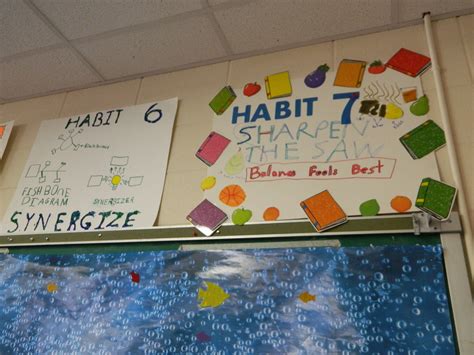 HABIT 6
FISH BONE
DIAGRAM
SYNERGIZER
SYNERGIZE
HABIT 7
SHARPEN
THE SAW
Balance Feels Best